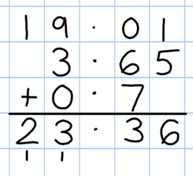 19.01
3.65
+ 0.7
23.36
1 1